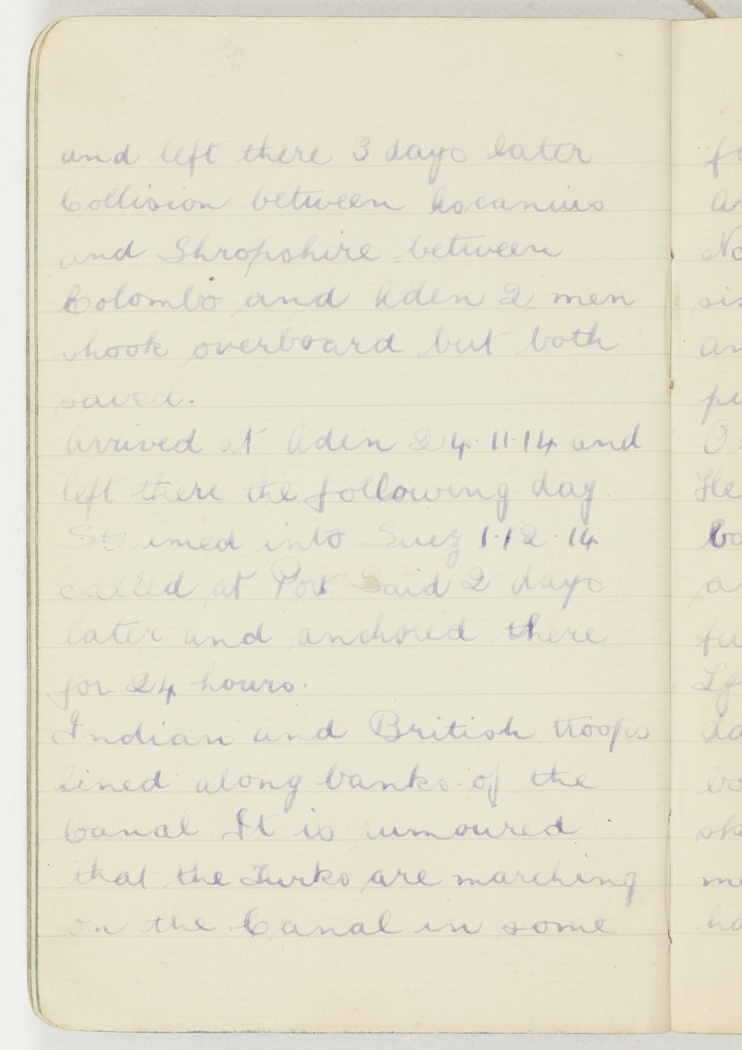 and left there 3 days later
Collision between Ascanius
and Shropshire between
Colombo and Aden 2 men
shook overboard but both
saved.
Arrived at Aden 24.11.14 and
left there the following day
Steamed into Suez 1.12.14
called at Port Said 2 days
later and anchored there
for 24 hours.
Indian and British troops
lined along banks of the
Canal It is rumoured
that the Turks are marching
on the Canal in some